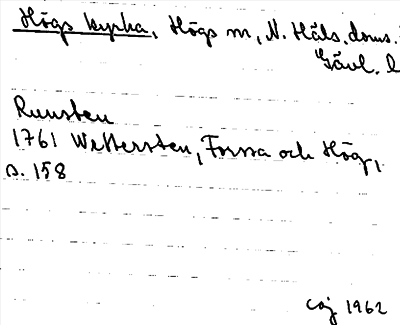 Högs kyrka, Högs sn, N. Häls. doms.
Gävl. l
Runsten
1761 Wettersten, Forssa och Hög,
s. 158
caj 1962